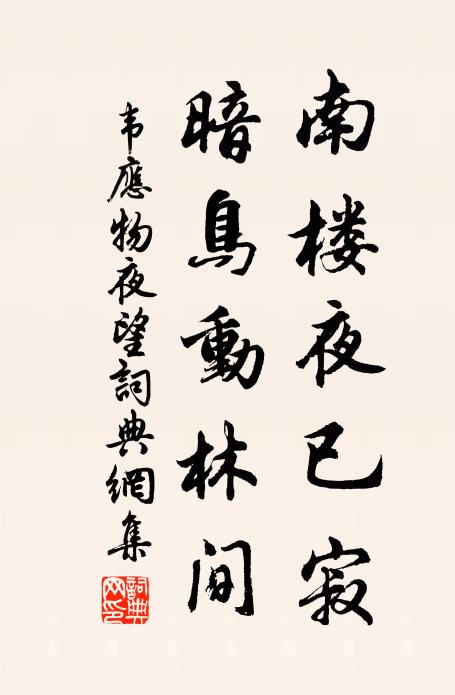 南楼夜已寂
暗鳥動林间
韦應物夜望詞典網集
詞典网印